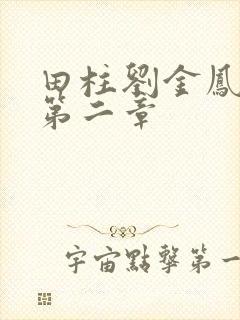 田柱劉金鳳
第二章
宇宙點擊第一